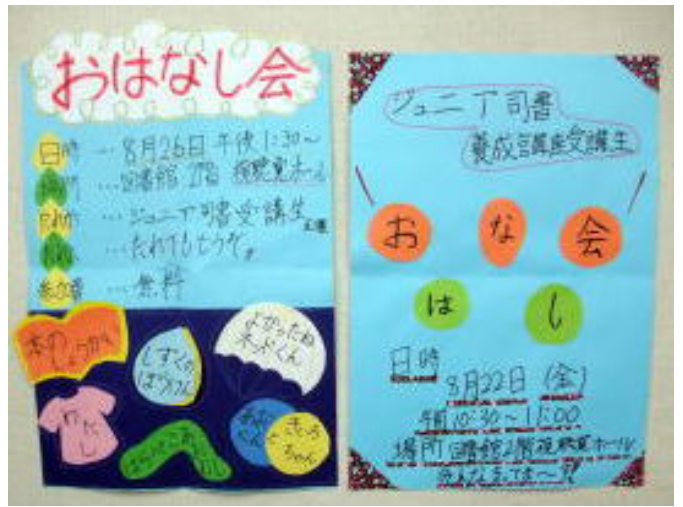 おはなし会
日時 … 8月26日 午後1:30～
場所 … 図書館 2階 視聴覚ホール
だれが … ジュニア司書受講生
… だれでもどうぞ。
参加費 … 無料
本のしょうかい
しずくのぼうけん
よかったねネッドくん
わたし
はらぺこあおむし
あおくんときいろちゃん
ジュニア司書
養成講座受講生
おはなし会
日時
8月22日(金)
午前10:30～11:00
場所 図書館2階視聴覚ホール
みんなきてね～!